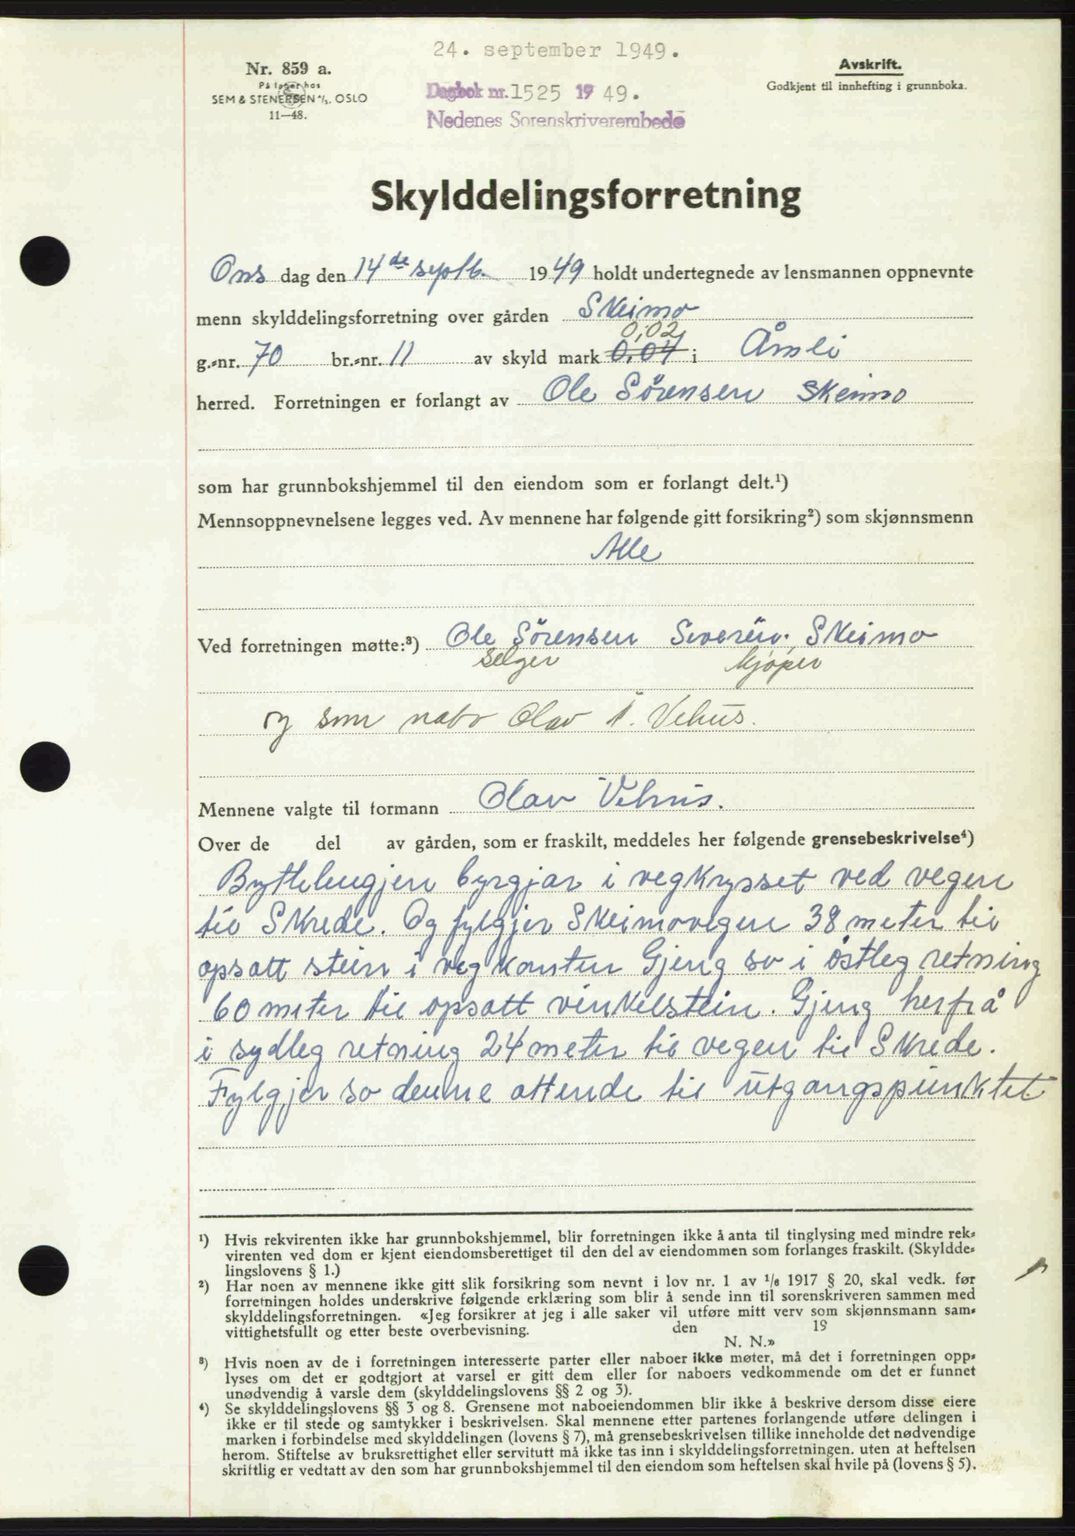 24. september 1949.
Nr. 859 a.
På lager hos
SEM & STENERSEN A/S. OSLO
11—48.
Dagbok nr. 1525 1949.
Nedenes Sorenskriverembede
Avskrift.
Godkjent til innhefting i grunnboka.
Skylddelingsforretning
Ons dag den 14de septb. 1949 holdt undertegnede av lensmannen oppnevnte
menn skylddelingsforretning over gården Skeimo
0,02
g.-nr. 70 br.-nr. 11 av skyld mark 0,04 i Åmli
herred. Forretningen er forlangt av Ole Sörensen Skeimo
som har grunnbokshjemmel til den eiendom som er forlangt delt.¹)
Mennsoppnevnelsene legges ved. Av mennene har følgende gitt forsikring²) som skjønnsmenn
Alle
Ved forretningen møtte:³) Ole Sörensen Severin. Skeimo
selger kjøper
og som nabo Olav Vehus.
Mennene valgte til formann Olav Vehus.
Over de del av gården, som er fraskilt, meddeles her følgende grensebeskrivelse⁴)
Byttelengjen byrgjar i vegkrysset ved vegen
til Skrede. Og fylgjer Skeimovegen 38 meter til
opsatt stein i vegkanten Gjeng so i östleg retning
60 meter til opsatt vinkelstein. Gjeng herfrå
i sydleg retning 24 meter til vegen til Skrede.
Fylgjer so denne attende til utgangspunktet
¹) Hvis rekvirenten ikke har grunnbokshjemmel, blir forretningen ikke å anta til tinglysing med mindre rek-
virenten ved dom er kjent eiendomsberettiget til den del av eiendommen som forlanges fraskilt. (Skyldde-
lingslovens § 1.)
²) Har noen av mennene ikke gitt slik forsikring som nevnt i lov nr. 1 av ¹/₆ 1917 § 20, skal vedk. før
forretningen holdes underskrive følgende erklæring som blir å sende inn til sorenskriveren sammen med
skylddelingsforretningen. «Jeg forsikrer at jeg i alle saker vil utføre mitt verv som skjønnsmann sam-
vittighetsfullt og etter beste overbevisning. den 19
N. N.»
³) Hvis noen av de i forretningen interesserte parter eller naboer ikke møter, må det i forretningen opp-
lyses om det er godtgjort at varsel er gitt dem eller for naboers vedkommende om det er funnet
unødvendig å varsle dem (skylddelingslovens §§ 2 og 3).
⁴) Se skylddelingslovens §§ 3 og 8. Grensene mot naboeiendommen blir ikke å beskrive dersom disse eiere
ikke er til stede og samtykker i beskrivelsen. Skal mennene etter partenes forlangende utføre delingen i
marken i forbindelse med skylddelingen (lovens § 7), må grensebeskrivelsen tillike inneholde det nødvendige
herom. Stiftelse av bruksrettighet eller servitutt må ikke tas inn i skylddelingsforretningen. uten at heftelsen
skriftlig er vedtatt av den som har grunnbokshjemmel til den eiendom som heftelsen skal hvile på (lovens § 5).